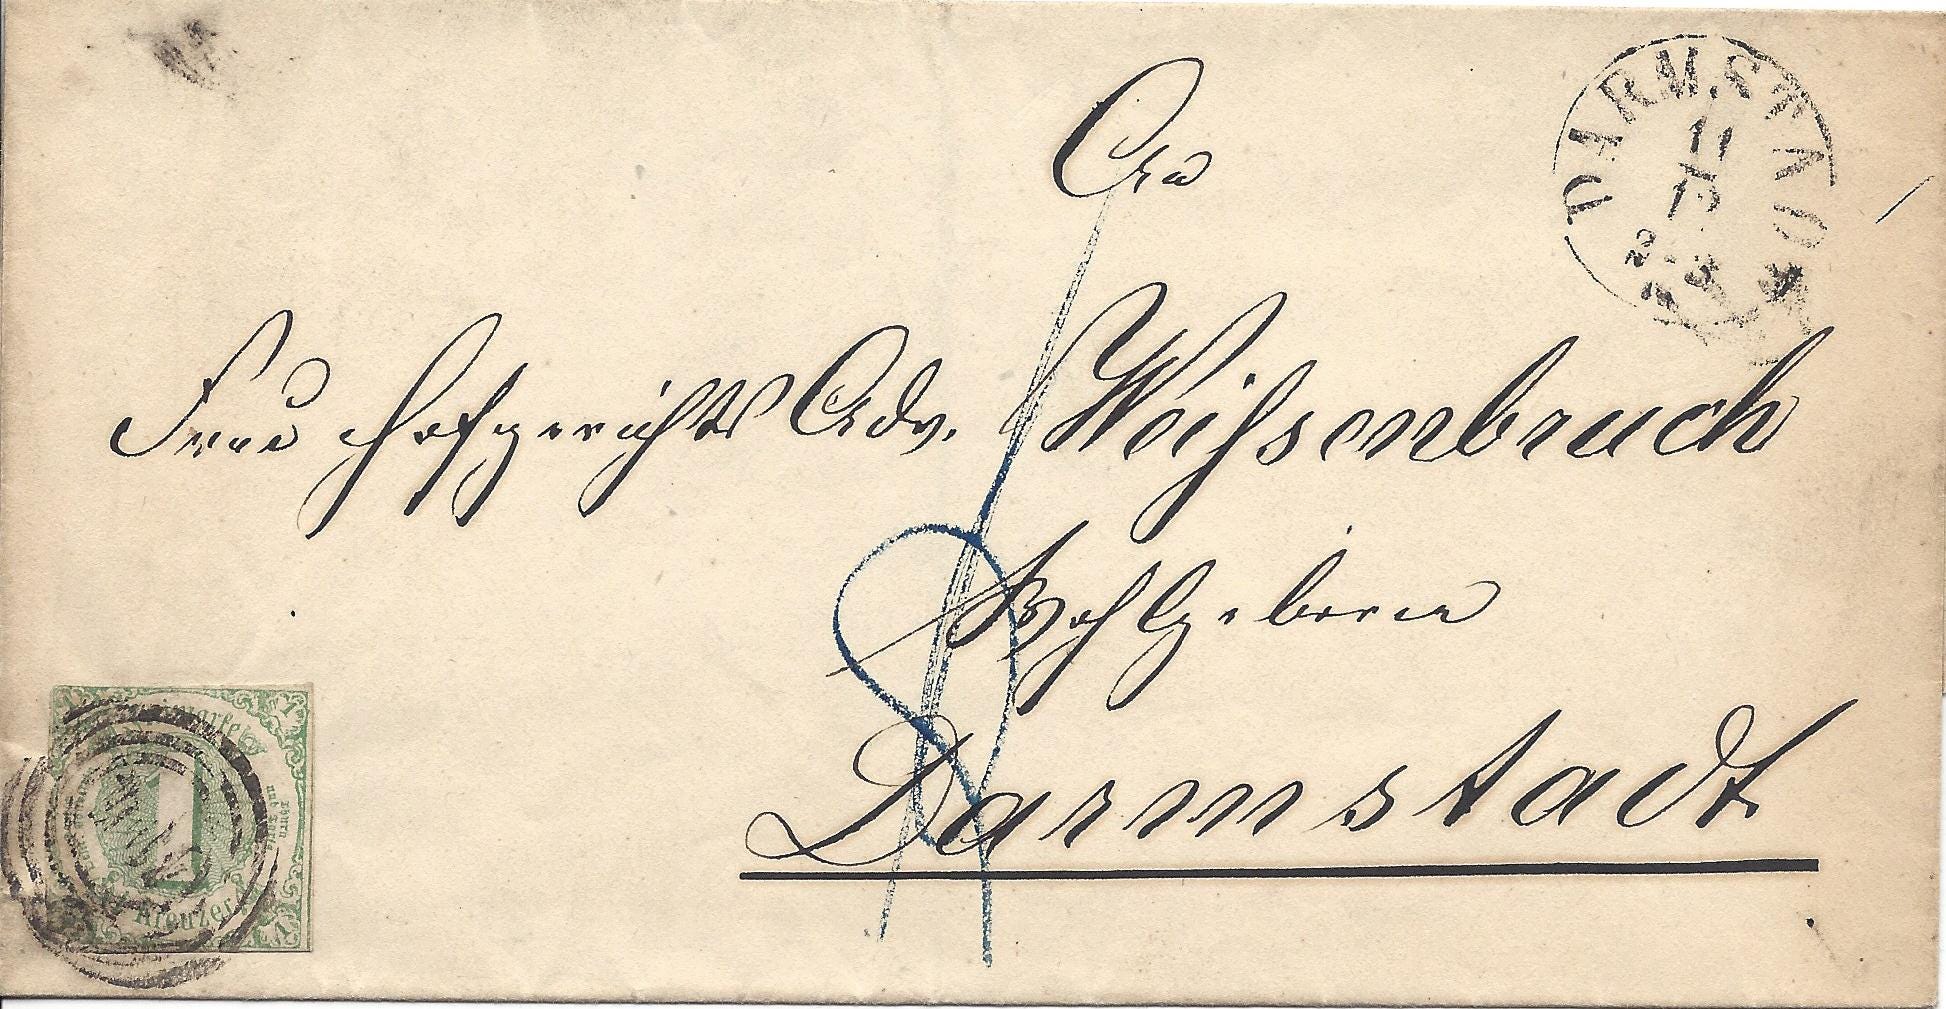 DARMSTADT
11
12
2-3
An
Frau Hofgerichts Adv. Weihsenbruch
Wohlgeboren
Darmstadt
1
Kreuzer
1
1